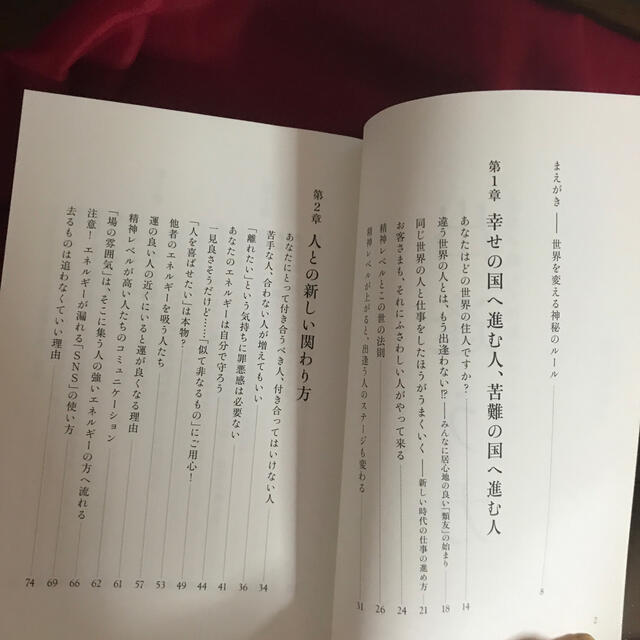 まえがき――世界を変える神秘のルール 8
第1章 幸せの国へ進む人、苦難の国へ進む人
あなたはどの世界の住人ですか? 14
違う世界の人とは、もう出逢わない!?――みんなに居心地の良い「類友」の始まり 18
同じ世界の人と仕事をしたほうがうまくいく――新しい時代の仕事の進め方 21
お客さまも、それにふさわしい人がやって来る 24
精神レベルとこの世の法則 26
精神レベルが上がると、出逢う人のステージも変わる 31
2
第2章 人との新しい関わり方
あなたにとって付き合うべき人、付き合ってはいけない人 34
苦手な人、合わない人が増えてもいい 36
「離れたい」という気持ちに罪悪感は必要ない 41
あなたのエネルギーは自分で守ろう 44
一見良さそうだけど……「似て非なるもの」にご用心! 49
「人を喜ばせたい」は本物? 53
他者のエネルギーを吸う人たち 57
運の良い人の近くにいると運が良くなる理由 61
精神レベルが高い人たちのコミュニケーション 62
「場の雰囲気」は、そこに集う人の強いエネルギーの方へ流れる 66
注意! エネルギーが漏れる「SNS」の使い方 69
去るものは追わなくていい理由 74